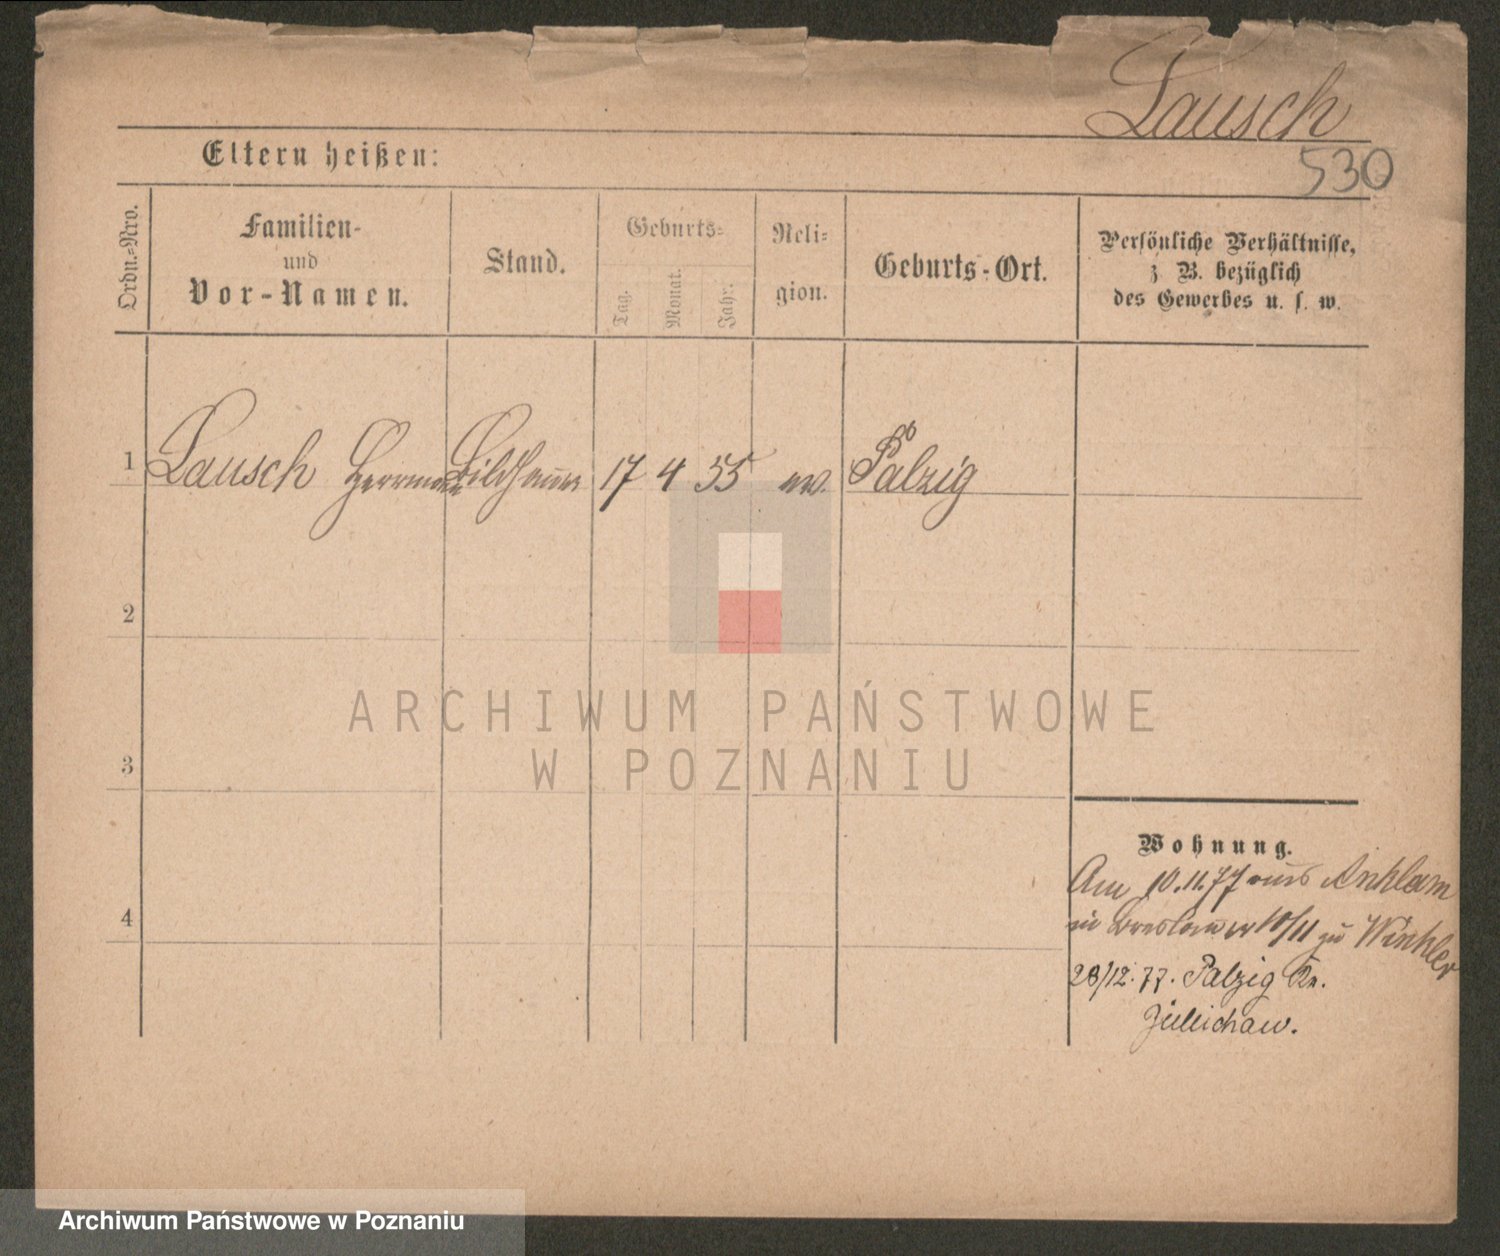 Lausch
530
Eltern heißen:
Ordn.=Nro.
Familien-
und
Vor-Namen.
Stand.
Geburts=
Tag.
Monat.
Jahr.
Reli=
gion.
Geburts-Ort.
Persönliche Verhältnisse,
z. B. bezüglich
des Gewerbes u. s. w.
1 Lausch Herrmann Bildhauer 17 4 55 ev. Palzig
2
3
4
Wohnung.
Am 10.11.77 aus Anklam
in Breslauer 10/11 zu Winkler
28/12.77. Palzig Kr.
Züllichau.
ARCHIWUM PAŃSTWOWE
W POZNANIU
Archiwum Państwowe w Poznaniu